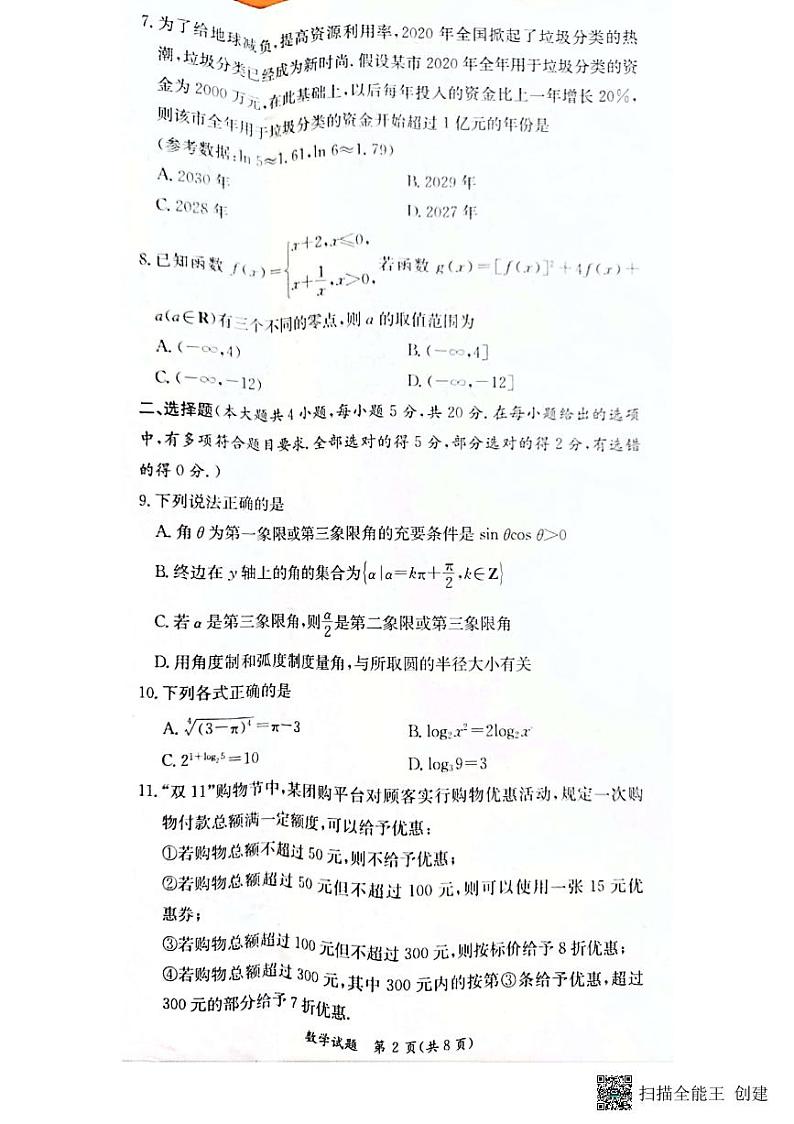 7. 为了给地球减负,提高资源利用率,2020 年全国掀起了垃圾分类的热
潮,垃圾分类已经成为新时尚. 假设某市 2020 年全年用于垃圾分类的资
金为 2000 万元,在此基础上,以后每年投入的资金比上一年增长 20%,
则该市全年用于垃圾分类的资金开始超过 1 亿元的年份是
(参考数据:ln 5≈1.61,ln 6≈1.79)
A. 2030 年 B. 2029 年
C. 2028 年 D. 2027 年
8. 已知函数 f(x)={x+2,x≤0, x+1/x,x>0, 若函数 g(x)=[f(x)]²+4f(x)+
a(a∈R)有三个不同的零点,则 a 的取值范围为
A. (-∞,4) B. (-∞,4]
C. (-∞,-12) D. (-∞,-12]
二、选择题(本大题共 4 小题,每小题 5 分,共 20 分. 在每小题给出的选项
中,有多项符合题目要求. 全部选对的得 5 分,部分选对的得 2 分,有选错
的得 0 分.)
9. 下列说法正确的是
A. 角 θ 为第一象限或第三象限角的充要条件是 sin θcos θ>0
B. 终边在 y 轴上的角的集合为{α|α=kπ+π/2,k∈Z}
C. 若 α 是第三象限角,则α/2是第二象限或第三象限角
D. 用角度制和弧度制度量角,与所取圆的半径大小有关
10. 下列各式正确的是
A. ⁴√(3-π)⁴=π-3 B. log₂x²=2log₂x
C. 2^(1+log₂5)=10 D. log₃9=3
11. “双 11”购物节中,某团购平台对顾客实行购物优惠活动,规定一次购
物付款总额满一定额度,可以给予优惠:
①若购物总额不超过 50 元,则不给予优惠;
②若购物总额超过 50 元但不超过 100 元,则可以使用一张 15 元优
惠券;
③若购物总额超过 100 元但不超过 300 元,则按标价给予 8 折优惠;
④若购物总额超过 300 元,其中 300 元内的按第③条给予优惠,超过
300 元的部分给予 7 折优惠.
数学试题 第 2 页(共 8 页)
扫描全能王 创建